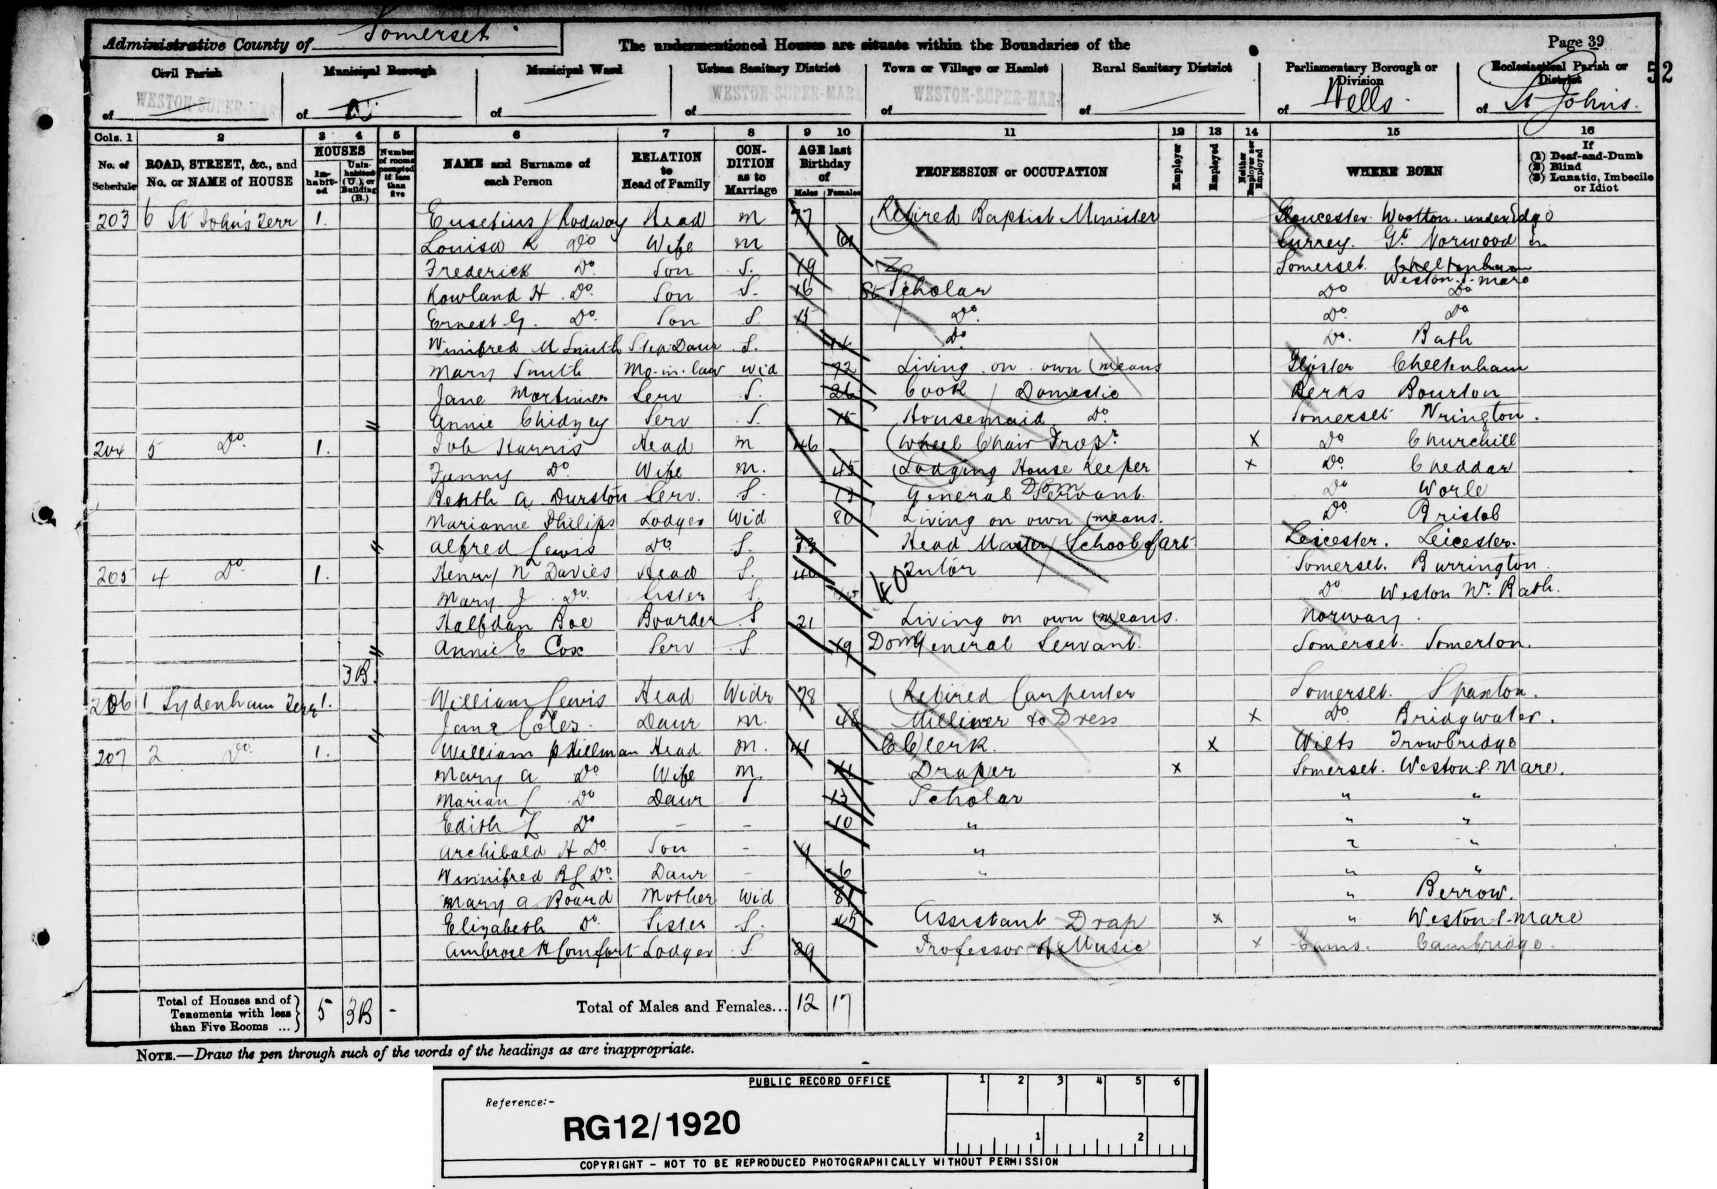 Administrative County of Somerset The undermentioned Houses are situate within the Boundaries of the Page 39
52
Civil Parish of WESTON-SUPER-MARE Municipal Borough of Municipal Ward of Urban Sanitary District of WESTON-SUPER-MARE Town or Village or Hamlet of WESTON-SUPER-MARE Rural Sanitary District of Parliamentary Borough or Division of Wells Ecclesiastical Parish or District of St Johns.
Cols. 1 2 3 4 5 6 7 8 9 10 11 12 13 14 15 16
No. of Schedule ROAD, STREET, &c., and No. or NAME of HOUSE HOUSES Inhabited Uninhabited (U.), or Building (B.) Number of rooms occupied if less than five NAME and Surname of each Person RELATION to Head of Family CONDITION as to Marriage AGE last Birthday of Males Females PROFESSION or OCCUPATION Employer Employed Neither Employer nor Employed WHERE BORN If (1) Deaf-and-Dumb (2) Blind (3) Lunatic, Imbecile or Idiot
203 6 St John's Terr 1. Eusebius J Rodway Head M 77 Retired Baptist Minister Gloucester Wootton underEdge
Louisa K Do Wife M 61 Surrey. Gt Norwood
Frederick Do Son S. 19 Somerset. Cheltenham
Rowland H. Do. Son S. 16 Scholar Do Weston.S.Mare Do
Ernest G. Do. Son S 15 Do. Do. Do
Winifred M Smith Step Daur S. Do Do. Bath
Mary Smith Mo-in-law Wid 72 Living on own means Gloster Cheltenham
Jane Mortimer Serv S. 26 Cook / Domestic Berks Bourton
Annie Chidzey Serv S. 15 Housemaid Do Somerset Wrington.
204 5 Do. 1. Job Harris Head M 46 Wheel Chair Propr X Do Churchill
Fanny Do Wife M. 45 Lodging House Keeper X Do. Cheddar
A. Durston Serv. S. 13 General Dom Servant Do Worle
Marianne Philips Lodger Wid 80 Living on own means. Do Bristol
Alfred Lewis Do S. 33 Head Master School of Art Leicester. Leicester.
205 4 Do 1. Henry N Davies Head S. 40 Tutor Somerset. Burrington.
Mary J Do. Sister S. Do Weston Nr Bath.
Halfdan Boe Boarder S 21 Living on own means. Norway.
Annie E Cox Serv S 19 Dom General Servant. Somerset. Somerton.
3B.
206 1 Sydenham Terr 1. William Lewis Head Widr 78 Retired Carpenter Somerset. Spaxton.
Jane Coles. Daur M. 48 Milliner & Dress X Do. Bridgwater.
207 2 Do 1. William P Hillman Head M. 41 Clerk. X Wilts Trowbridge
Mary A Do Wife M 41 Draper X Somerset. Weston S. Mare.
Marian L Do Daur S 13 Scholar " "
Edith L Do - - 10 " " "
Archibald H Do. Son - " " "
Winnifred B L Do. Daur - 6 " " "
Mary A Board Mother Wid " Berrow.
Elizabeth Do. Sister S. 45 Assistant Drap X " Weston S. Mare
Ambrose H Comfort Lodger S 29 Professor of Music X Cams. Cambridge.
Total of Houses and of Tenements with less than Five Rooms ... 5 3B - Total of Males and Females... 12 17
NOTE.—Draw the pen through such of the words of the headings as are inappropriate.
PUBLIC RECORD OFFICE 1 2 3 4 5 6
Reference:-
RG12/1920
1 2
COPYRIGHT - NOT TO BE REPRODUCED PHOTOGRAPHICALLY WITHOUT PERMISSION